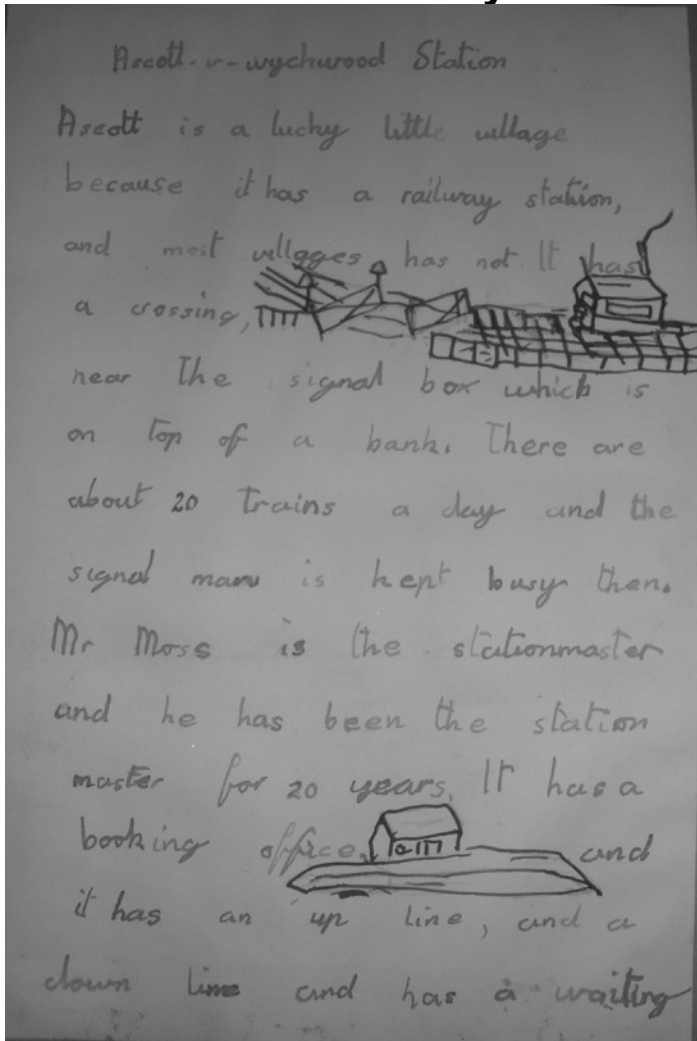 Ascott-u-wychwood Station
Ascott is a lucky little village
because it has a railway station,
and most villages has not It has
a crossing,
near the signal box which is
on top of a bank. There are
about 20 trains a day and the
signal man is kept busy then.
Mr Moss is the stationmaster
and he has been the station
master for 20 years. It has a
booking office, and
it has an up line, and a
down line and has a waiting